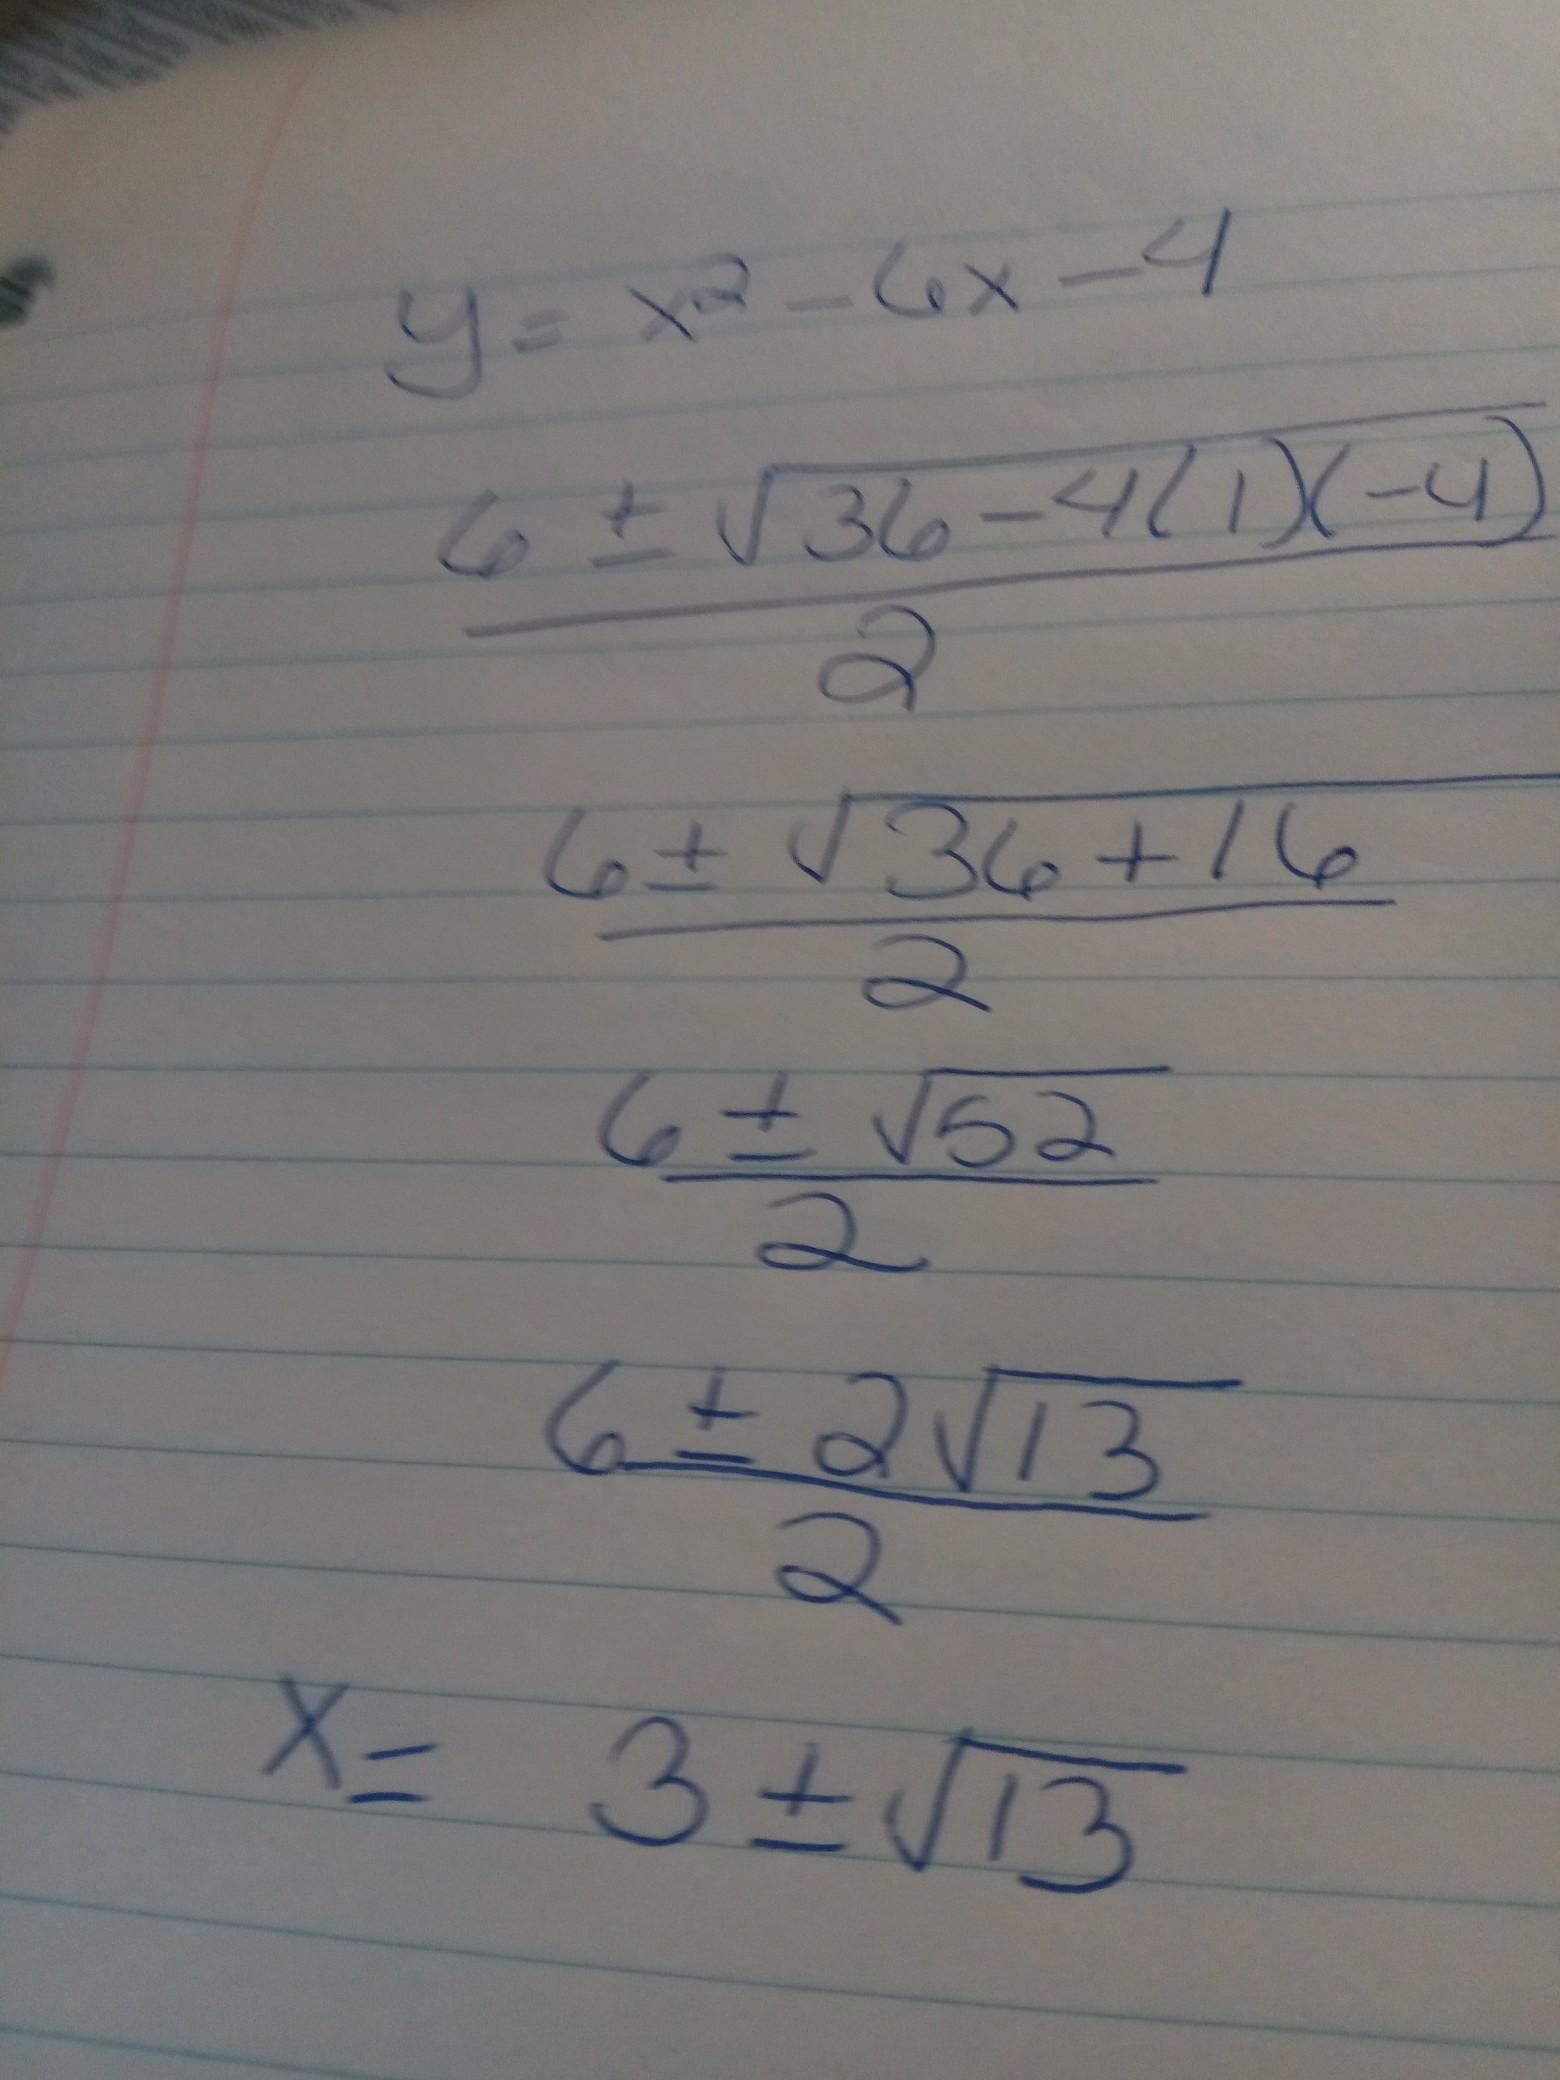 y = x² - 6x - 4
6 ± √36 - 4(1)(-4)
2
6 ± √36 + 16
2
6 ± √52
2
6 ± 2√13
2
x = 3 ± √13